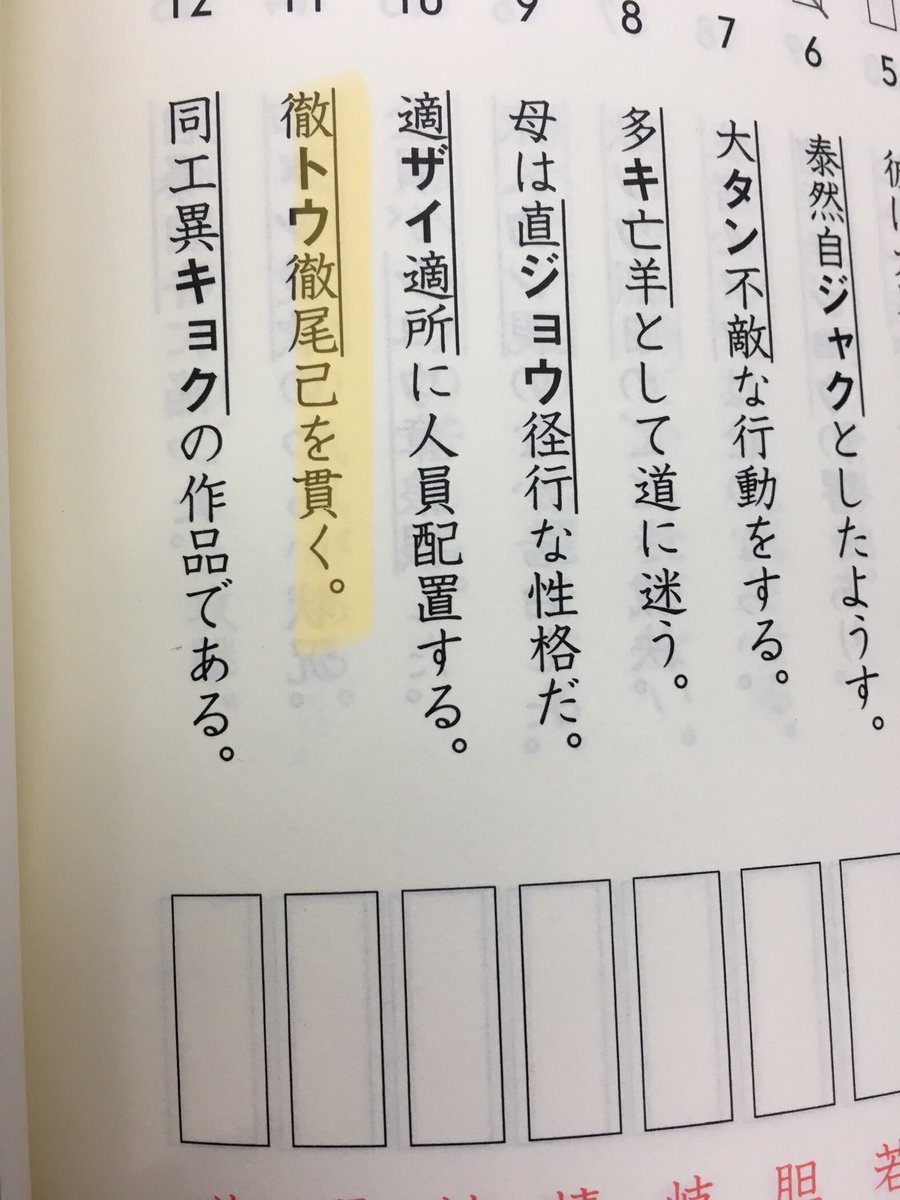 5
6
泰然自ジャクとしたようす。
7
大タン不敵な行動をする。
8
多キ亡羊として道に迷う。
9
母は直ジョウ径行な性格だ。
10
適ザイ適所に人員配置する。
11
徹トウ徹尾己を貫く。
12
同工異キョクの作品である。
若
胆
岐
情